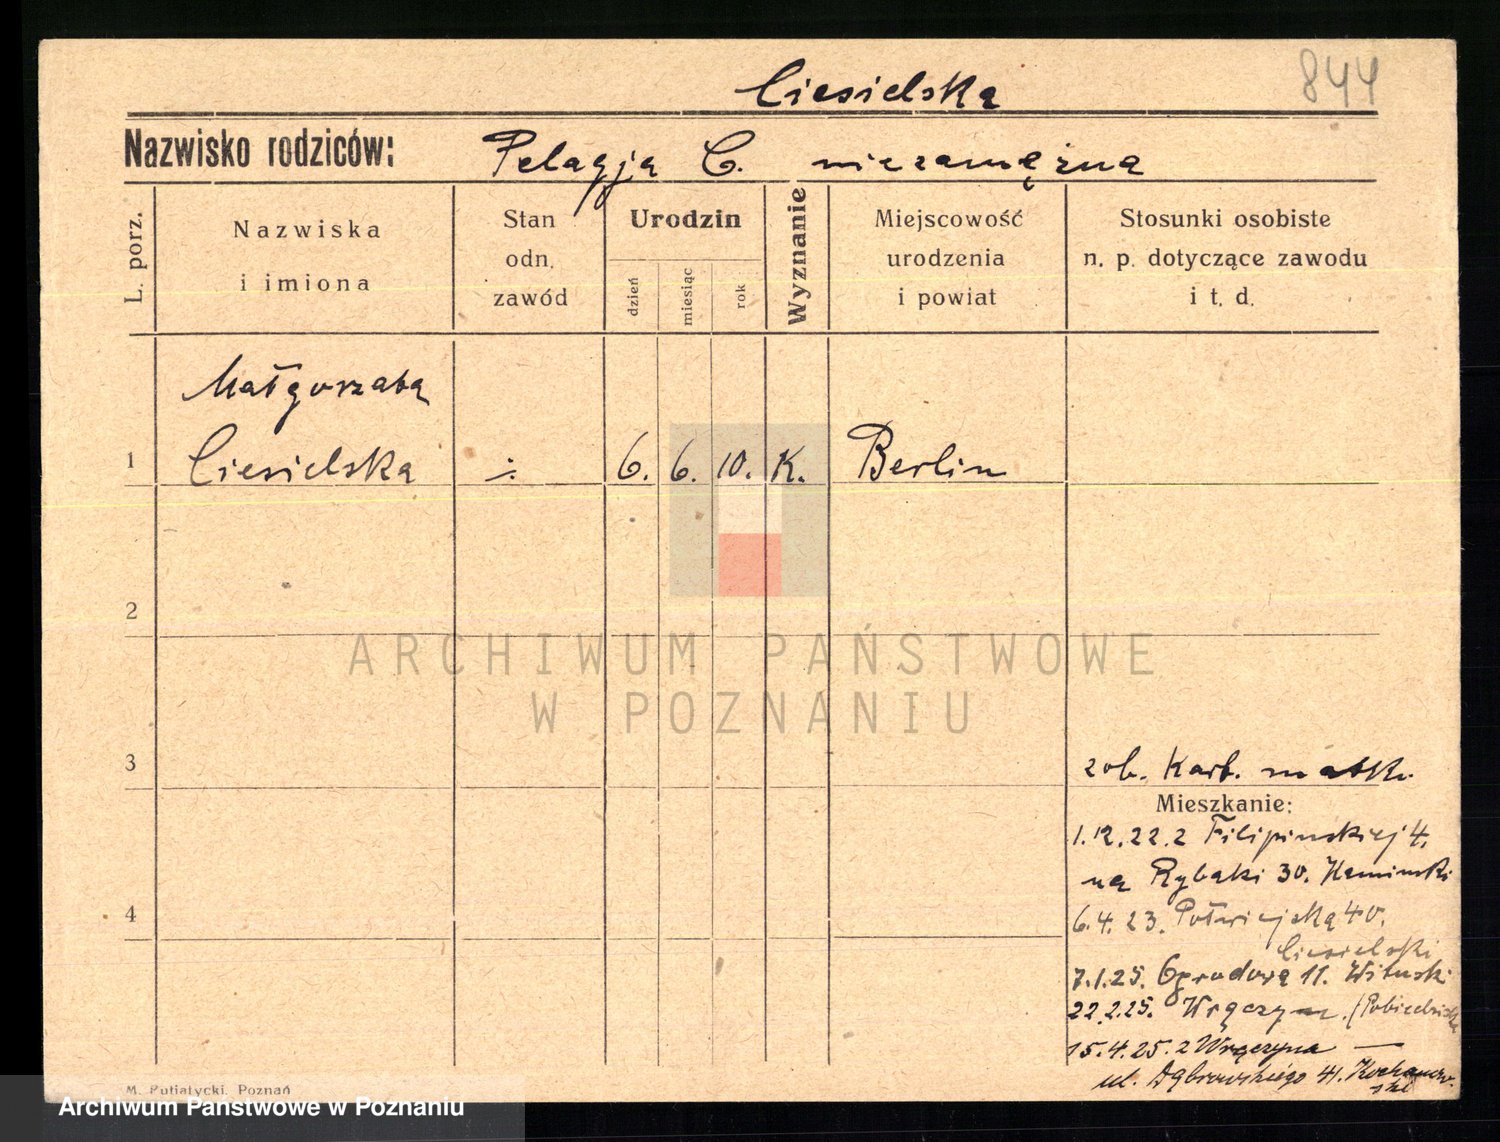 844
Ciesielska
Nazwisko rodziców: Pelagja C. niezamężna
L. porz.
Nazwiska i imiona
Stan odn. zawód
Urodzin
dzień
miesiąc
rok
Wyznanie
Miejscowość urodzenia i powiat
Stosunki osobiste n. p. dotyczące zawodu i t. d.
Małgorzata
1 Ciesielska ÷ 6. 6. 10. K. Berlin
2
ARCHIWUM PAŃSTWOWE
W POZNANIU
3 zob. Kart. matki.
Mieszkanie:
1.12.22. z Filipińskiej 4.
na Rybaki 30. Kaminski
4
6.4.23. Półwiejska 40.
Ciesielski
7.1.25. Ogrodowa 11. Wituski
22.2.25. Wręczyn. (Pobiedziska
15.4.25. z Wręczyna —
ul. Dąbrowskiego 41. Kochanowski
M. Putiatycki, Poznań
Archiwum Państwowe w Poznaniu